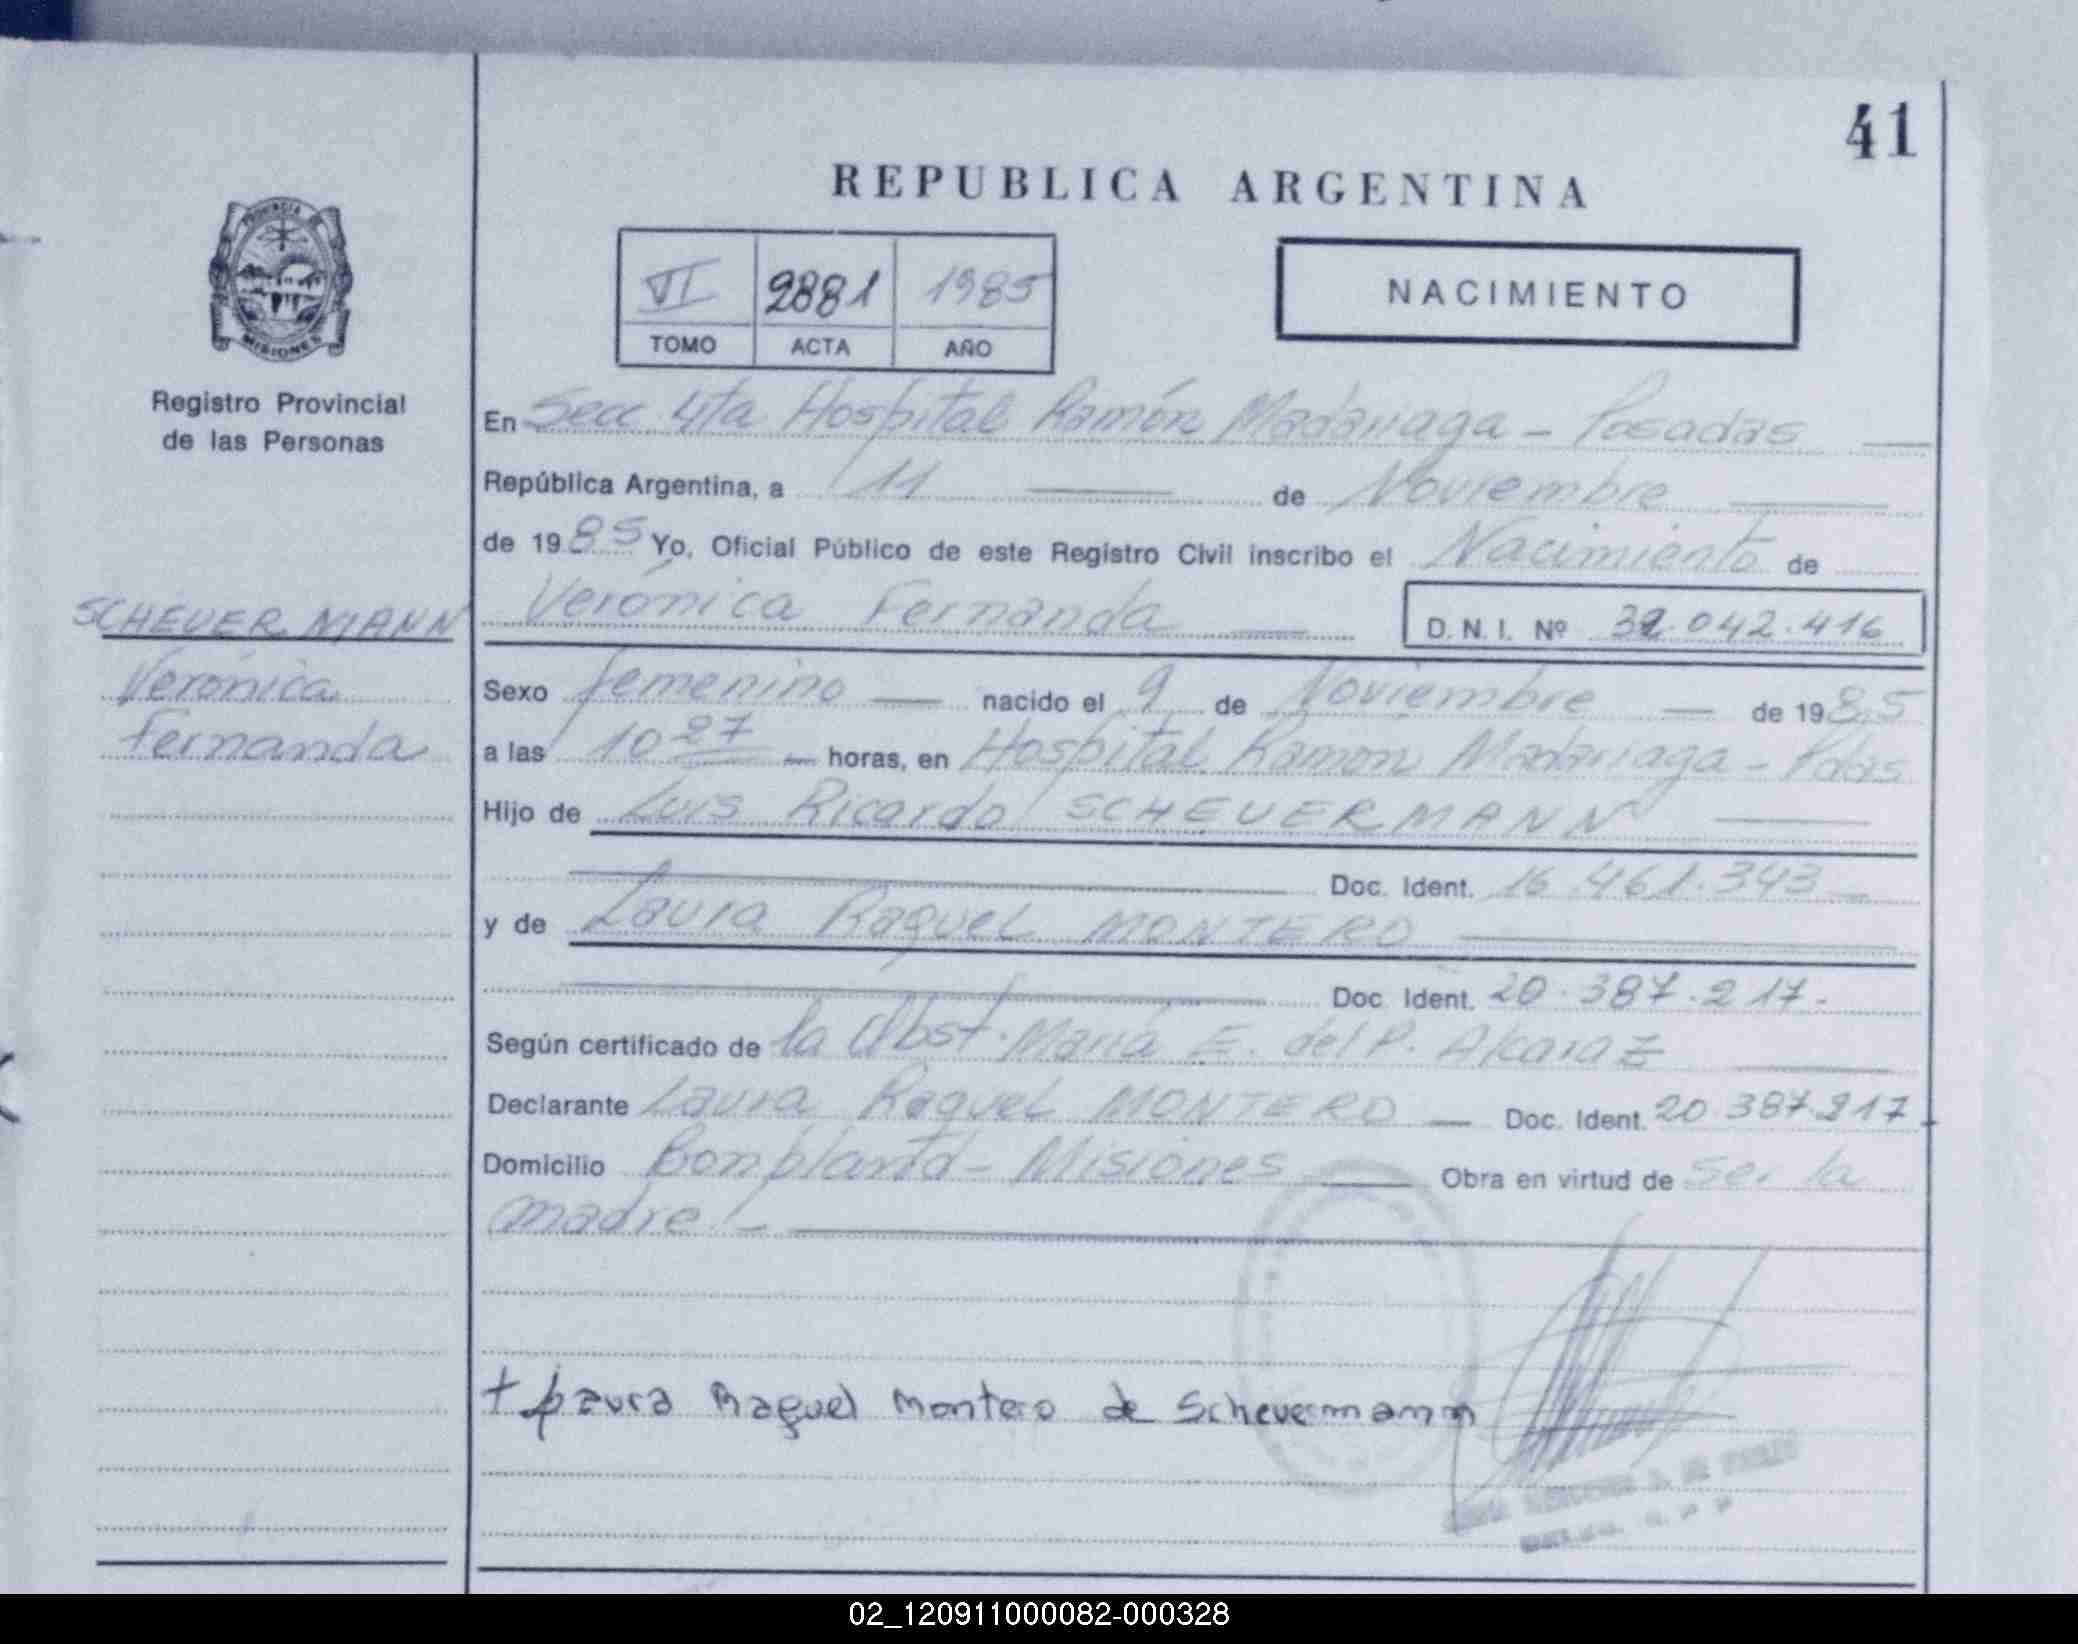 41
REPUBLICA ARGENTINA
VI 2881 1985
TOMO ACTA AÑO
NACIMIENTO
PROVINCIA
MISIONES
Registro Provincial
de las Personas
SCHEUERMANN
Verónica
Fernanda
En Secc 4ta Hospital Ramón Madariaga - Posadas
República Argentina, a 11 de Noviembre
de 1985 Yo, Oficial Público de este Registro Civil inscribo el Nacimiento de
Verónica Fernanda D. N. I. Nº 32.042.416
Sexo femenino nacido el 9 de Noviembre de 1985
a las 10 27 horas, en Hospital Ramon Madariaga - Pdas
Hijo de Luis Ricardo SCHEUERMANN
Doc. Ident. 16.461.343
y de Laura Raquel MONTERO
Doc. Ident. 20.387.217.
Según certificado de la Obst. María E. del P. Alcaraz
Declarante Laura Raquel MONTERO Doc. Ident. 20.387.217
Domicilio Bonpland - Misiones Obra en virtud de ser la
madre
+ Laura Raquel Montero de Scheuermann
02_120911000082-000328